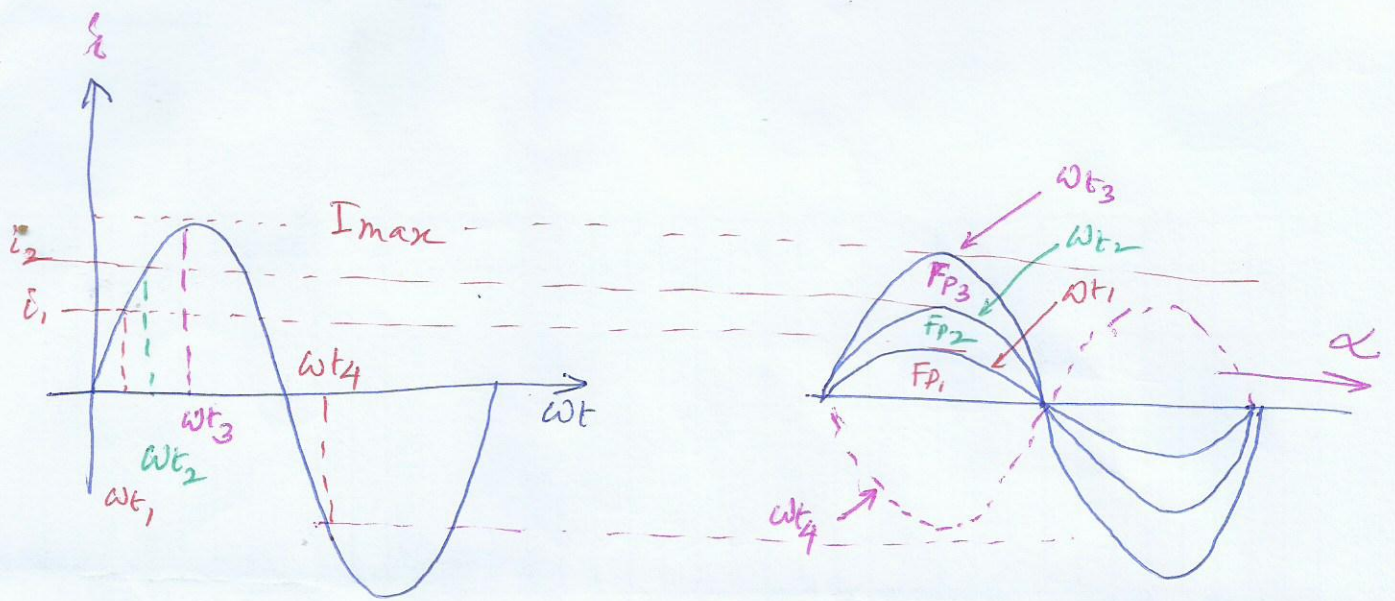 i
i₂
i₁
Imax
ωt₄
ωt
ωt₃
ωt₂
ωt₁
ωt₃
ωt₂
ωt₁
Fp₃
Fp₂
Fp₁
α
ωt₄